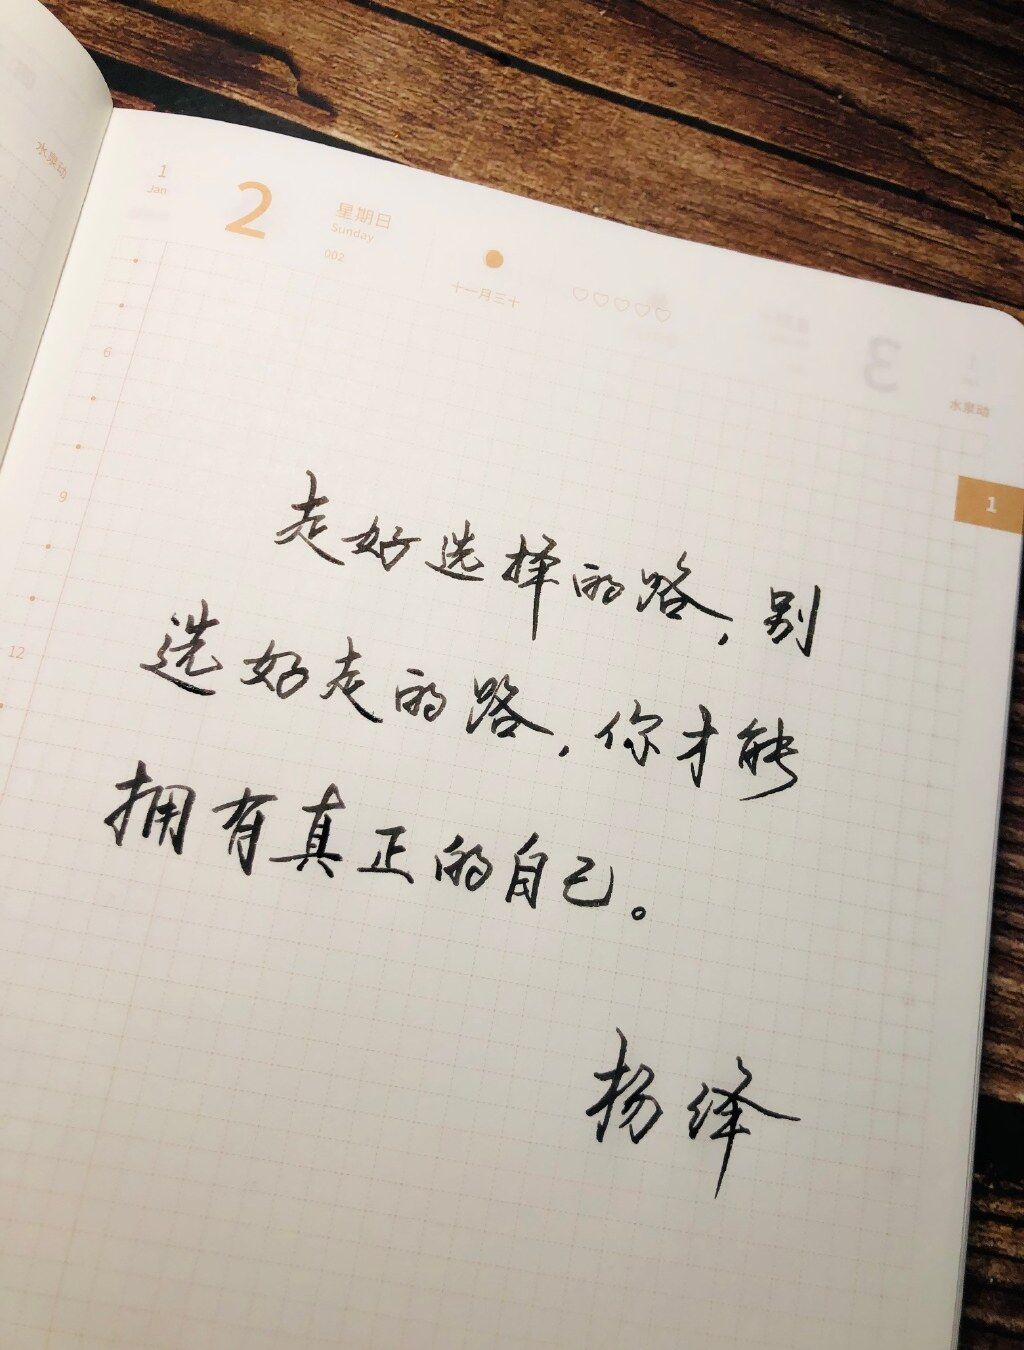 水泉动
1
Jan
2
星期日
Sunday
002
十一月三十
3
水泉动
1
6
9
12
走好选择的路，别
选好走的路，你才能
拥有真正的自己。
杨绛